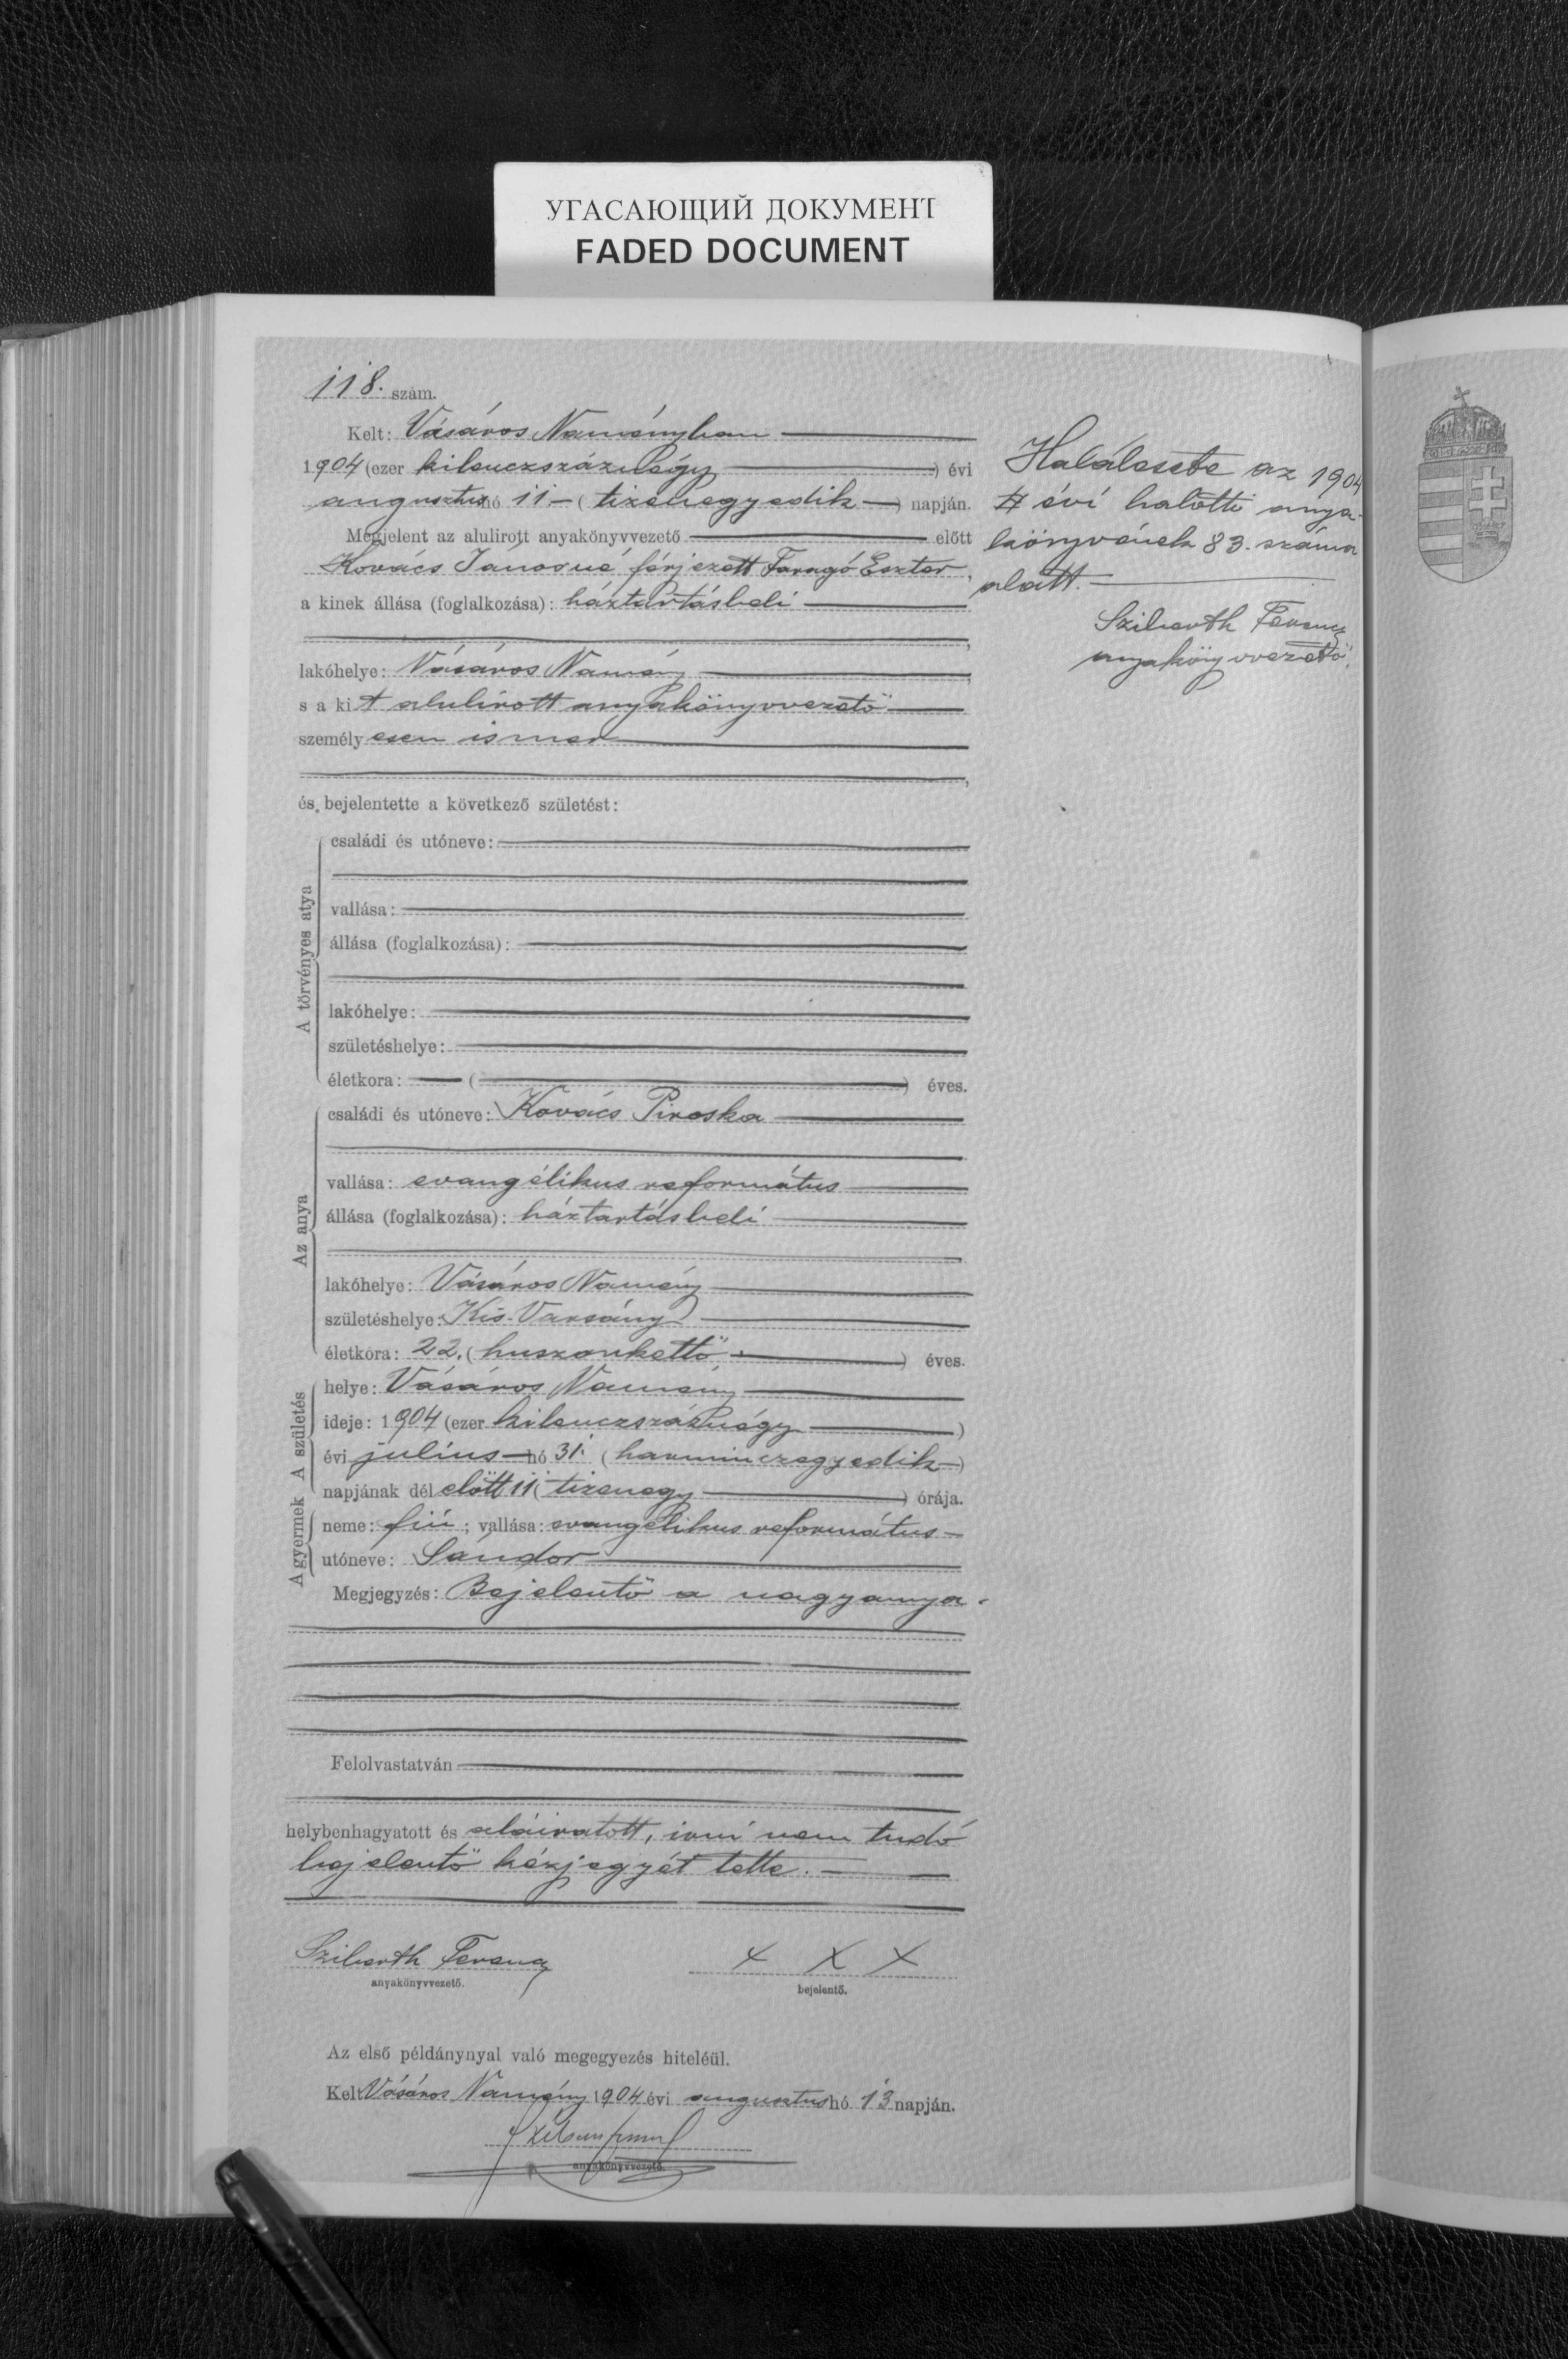 УГАСАЮЩИЙ ДОКУМЕНТ
FADED DOCUMENT
118. szám.
Kelt: Vásáros Naményban
1904 (ezer kilenczszáznégy) évi
augusztus hó 11 (tizenegyedik) napján.
Megjelent az alulirott anyakönyvvezető előtt
Kovács Jánosné férjezett Faragó Eszter,
a kinek állása (foglalkozása): háztartásbeli
lakóhelye: Vásáros Namény,
s a kit alulírott anyakönyvvezető
személyesen ismer,
és bejelentette a következő születést:
A törvényes atya
családi és utóneve:
vallása:
állása (foglalkozása):
lakóhelye:
születéshelye:
életkora: ( ) éves.
Az anya
családi és utóneve: Kovács Piroska
vallása: evangélikus református
állása (foglalkozása): háztartásbeli
lakóhelye: Vásáros Namény
születéshelye: Kis-Varsány
életkora: 22. (huszonkettő) éves.
A születés
helye: Vásáros Namény
ideje: 1904 (ezer kilenczszáznégy)
évi július hó 31. (harminczegyedik)
napjának dél előtt 11 (tizenegy) órája.
A gyermek
neme: fiú; vallása: evangélikus református
utóneve: Sándor
Megjegyzés: Bejelentő a nagyanya.
Felolvastatván
helybenhagyatott és aláiratott, irni nem tudó
bejelentő kézjegyét tette.
Sziberth Ferencz
anyakönyvvezető.
X X X
bejelentő.
Az első példánynyal való megegyezés hiteléül.
Kelt Vásáros Namény 1904 évi augusztus hó 13 napján.
anyakönyvvezető.
Halálesete az 1904
# évi halotti anya-
könyvének 83. száma
alatt.
Sziberth Ferencz
anyakönyvvezető.